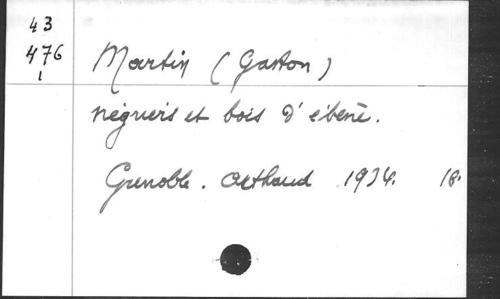 43
476
1
Martin (Gaston)
négriers et bois d'ébène.
Grenoble. Arthaud 1934. 18.